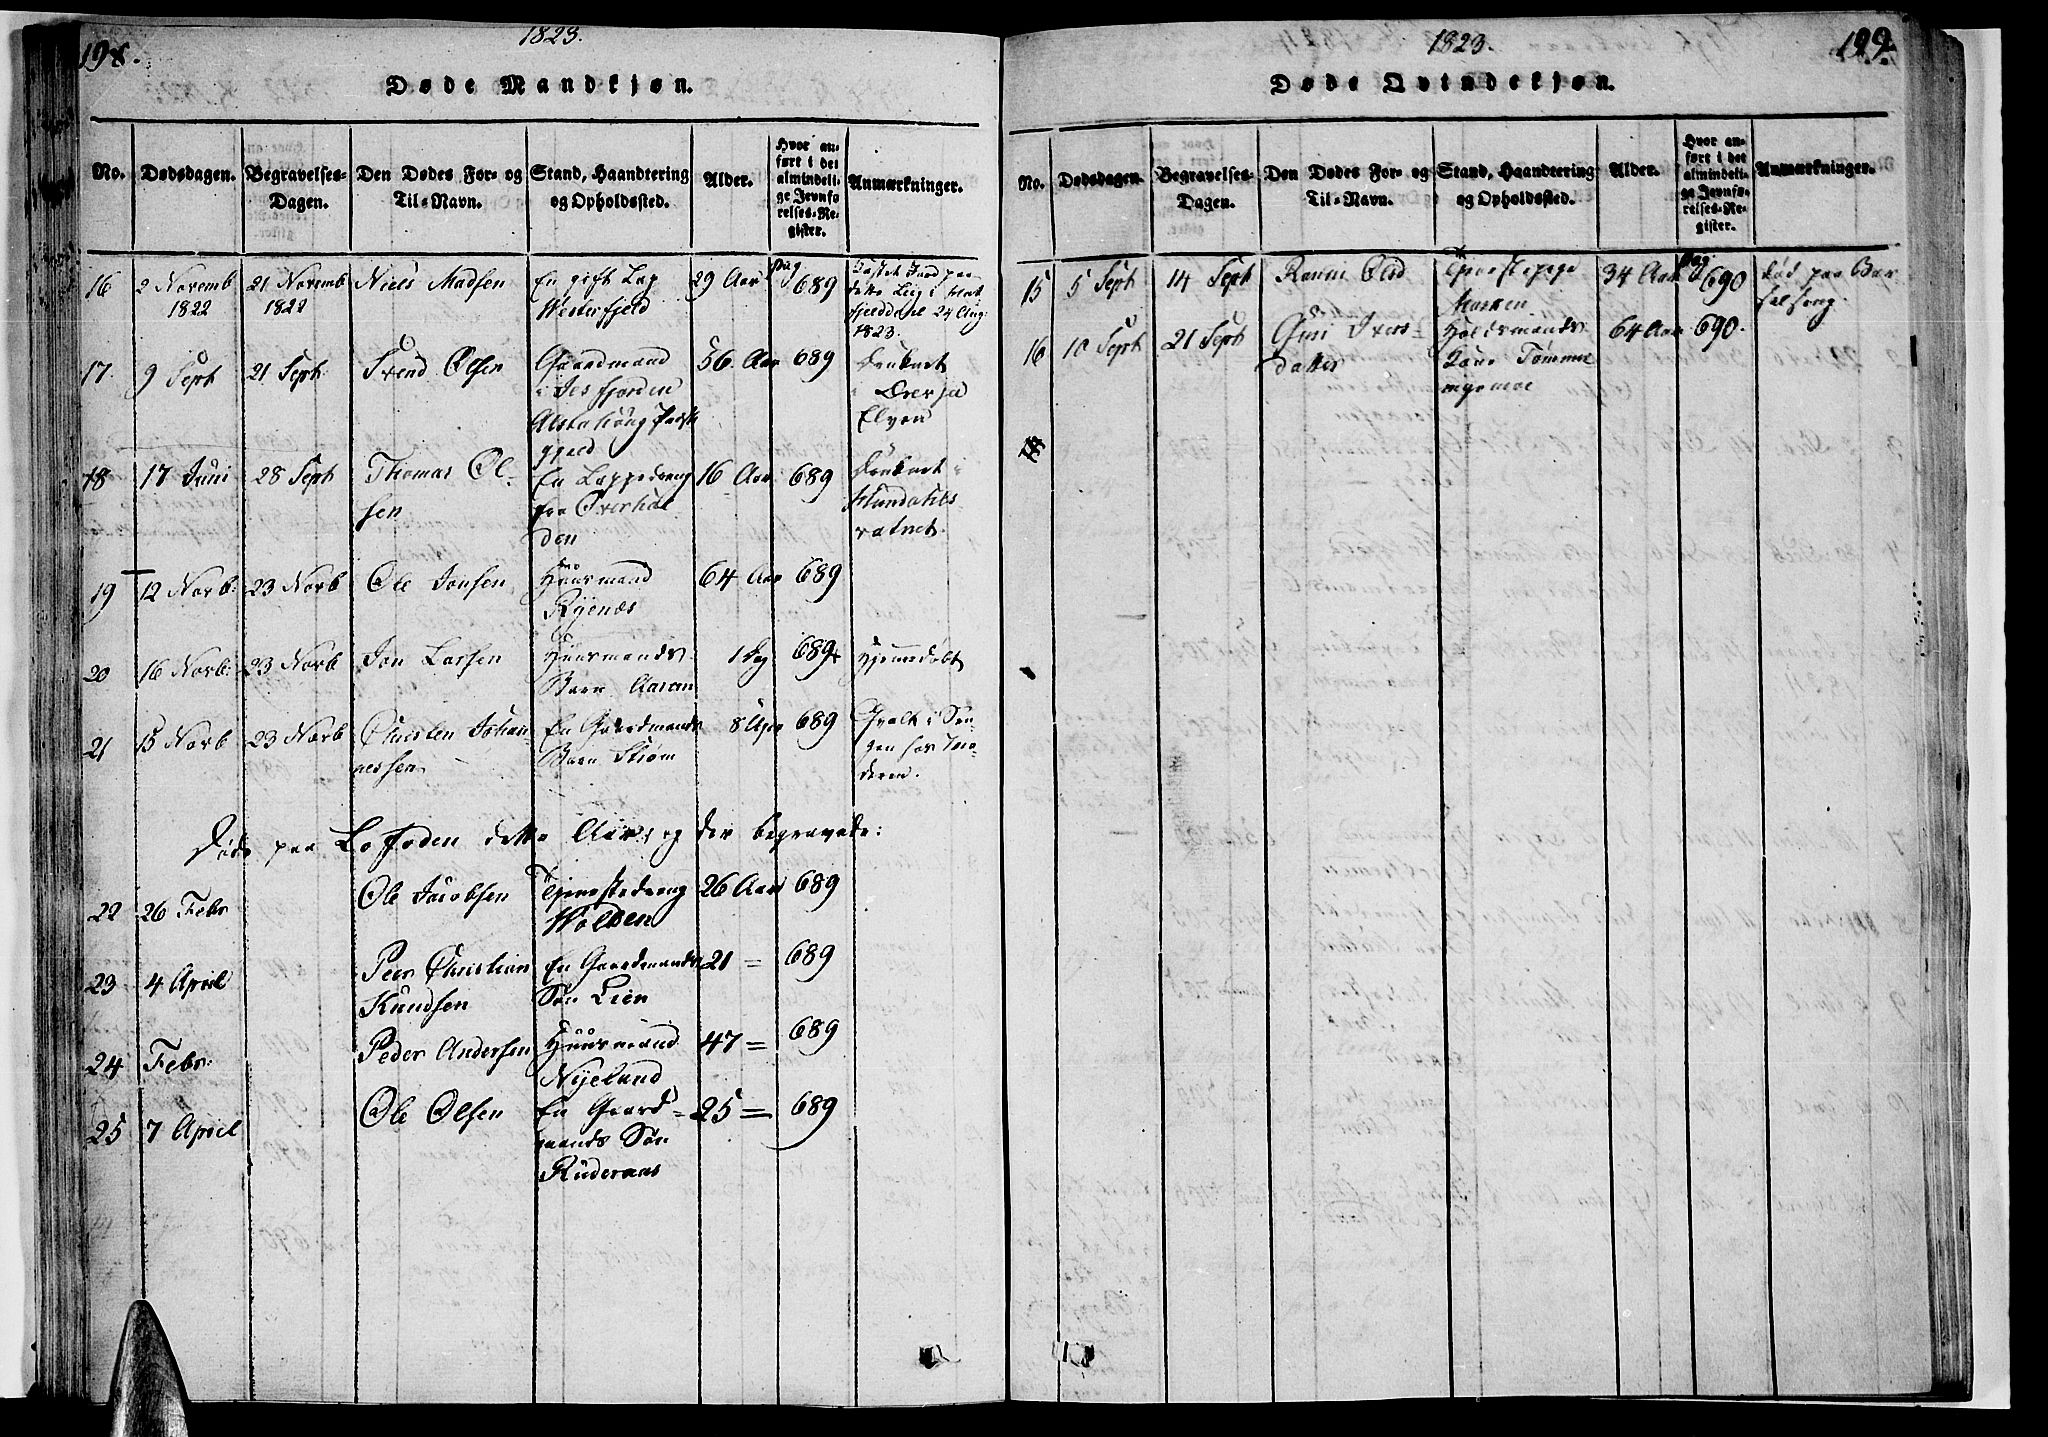 198.
1823.
Døde Mandkjøn.
No. Dødsdagen. Begravelses-Dagen. Den Dødes For- og Til-Navn. Stand, Haandtering og Opholdssted. Alder. Hvor anført i det almindelige Jevnførelses-Register. Anmærkninger.
16 2 Novemb 1822 21 Novemb 1822 Niels Madsen En gift Lap Westerfjeld 29 Aar pag 689 Kastet Jord paa dette Liig i 24 Aug: 1823.
17. 9 Sept 21 Sept: Svend Olsen Gaardmand i Alstahoug Præstegjeld 56 Aar 689 Druknet i Elven
18 17 Juni 28 Sept Thomas Olsen En Lappedreng fra Overhalden 16 Aar 689 Druknet i vatnet.
19 12 Novb: 23 Novb Ole Jonsen Huusmand Ryenæs 64 Aar 689
20 16 Novb: 23 Novb Jon Larsen Huusmands Barn 1 Dg 689 Hjemmedøbt
21 15 Novb 23 Novb Christen Johannessen En Gaardmands Barn Strøm 8 Uger 689 Qvalt i Sengen hos Moderen.
Døde paa Lofoden dette Aar, og der begravede:
22 26 Febr Ole Jacobsen Tjenestedreng Wolden 26 Aar 689
23 4 April Peer Christian Knudsen En Gaardmands Søn Lien 21 = 689
24 Febr: Peder Andersen Huusmand Nyelund 47 = 689
25 7 April Ole Olsen En Gaardmands Søn Ruderaas 25 = 689
1823.
199.
Døde Qvindekjøn.
No. Dødsdagen. Begravelses-Dagen. Den Dødes For- og Til-Navn. Stand, Haandtering og Opholdssted. Alder. Hvor anført i det almindelige Jevnførelses-Register. Anmærkninger.
15 5 Sept 14 Sept Olsd Tjenestepige 34 Aar pag: 690 død paa Barselseng.
16 10 Sept 21 Sept Guri Iversdatter Tømmermyemoe 64 Aar 690.